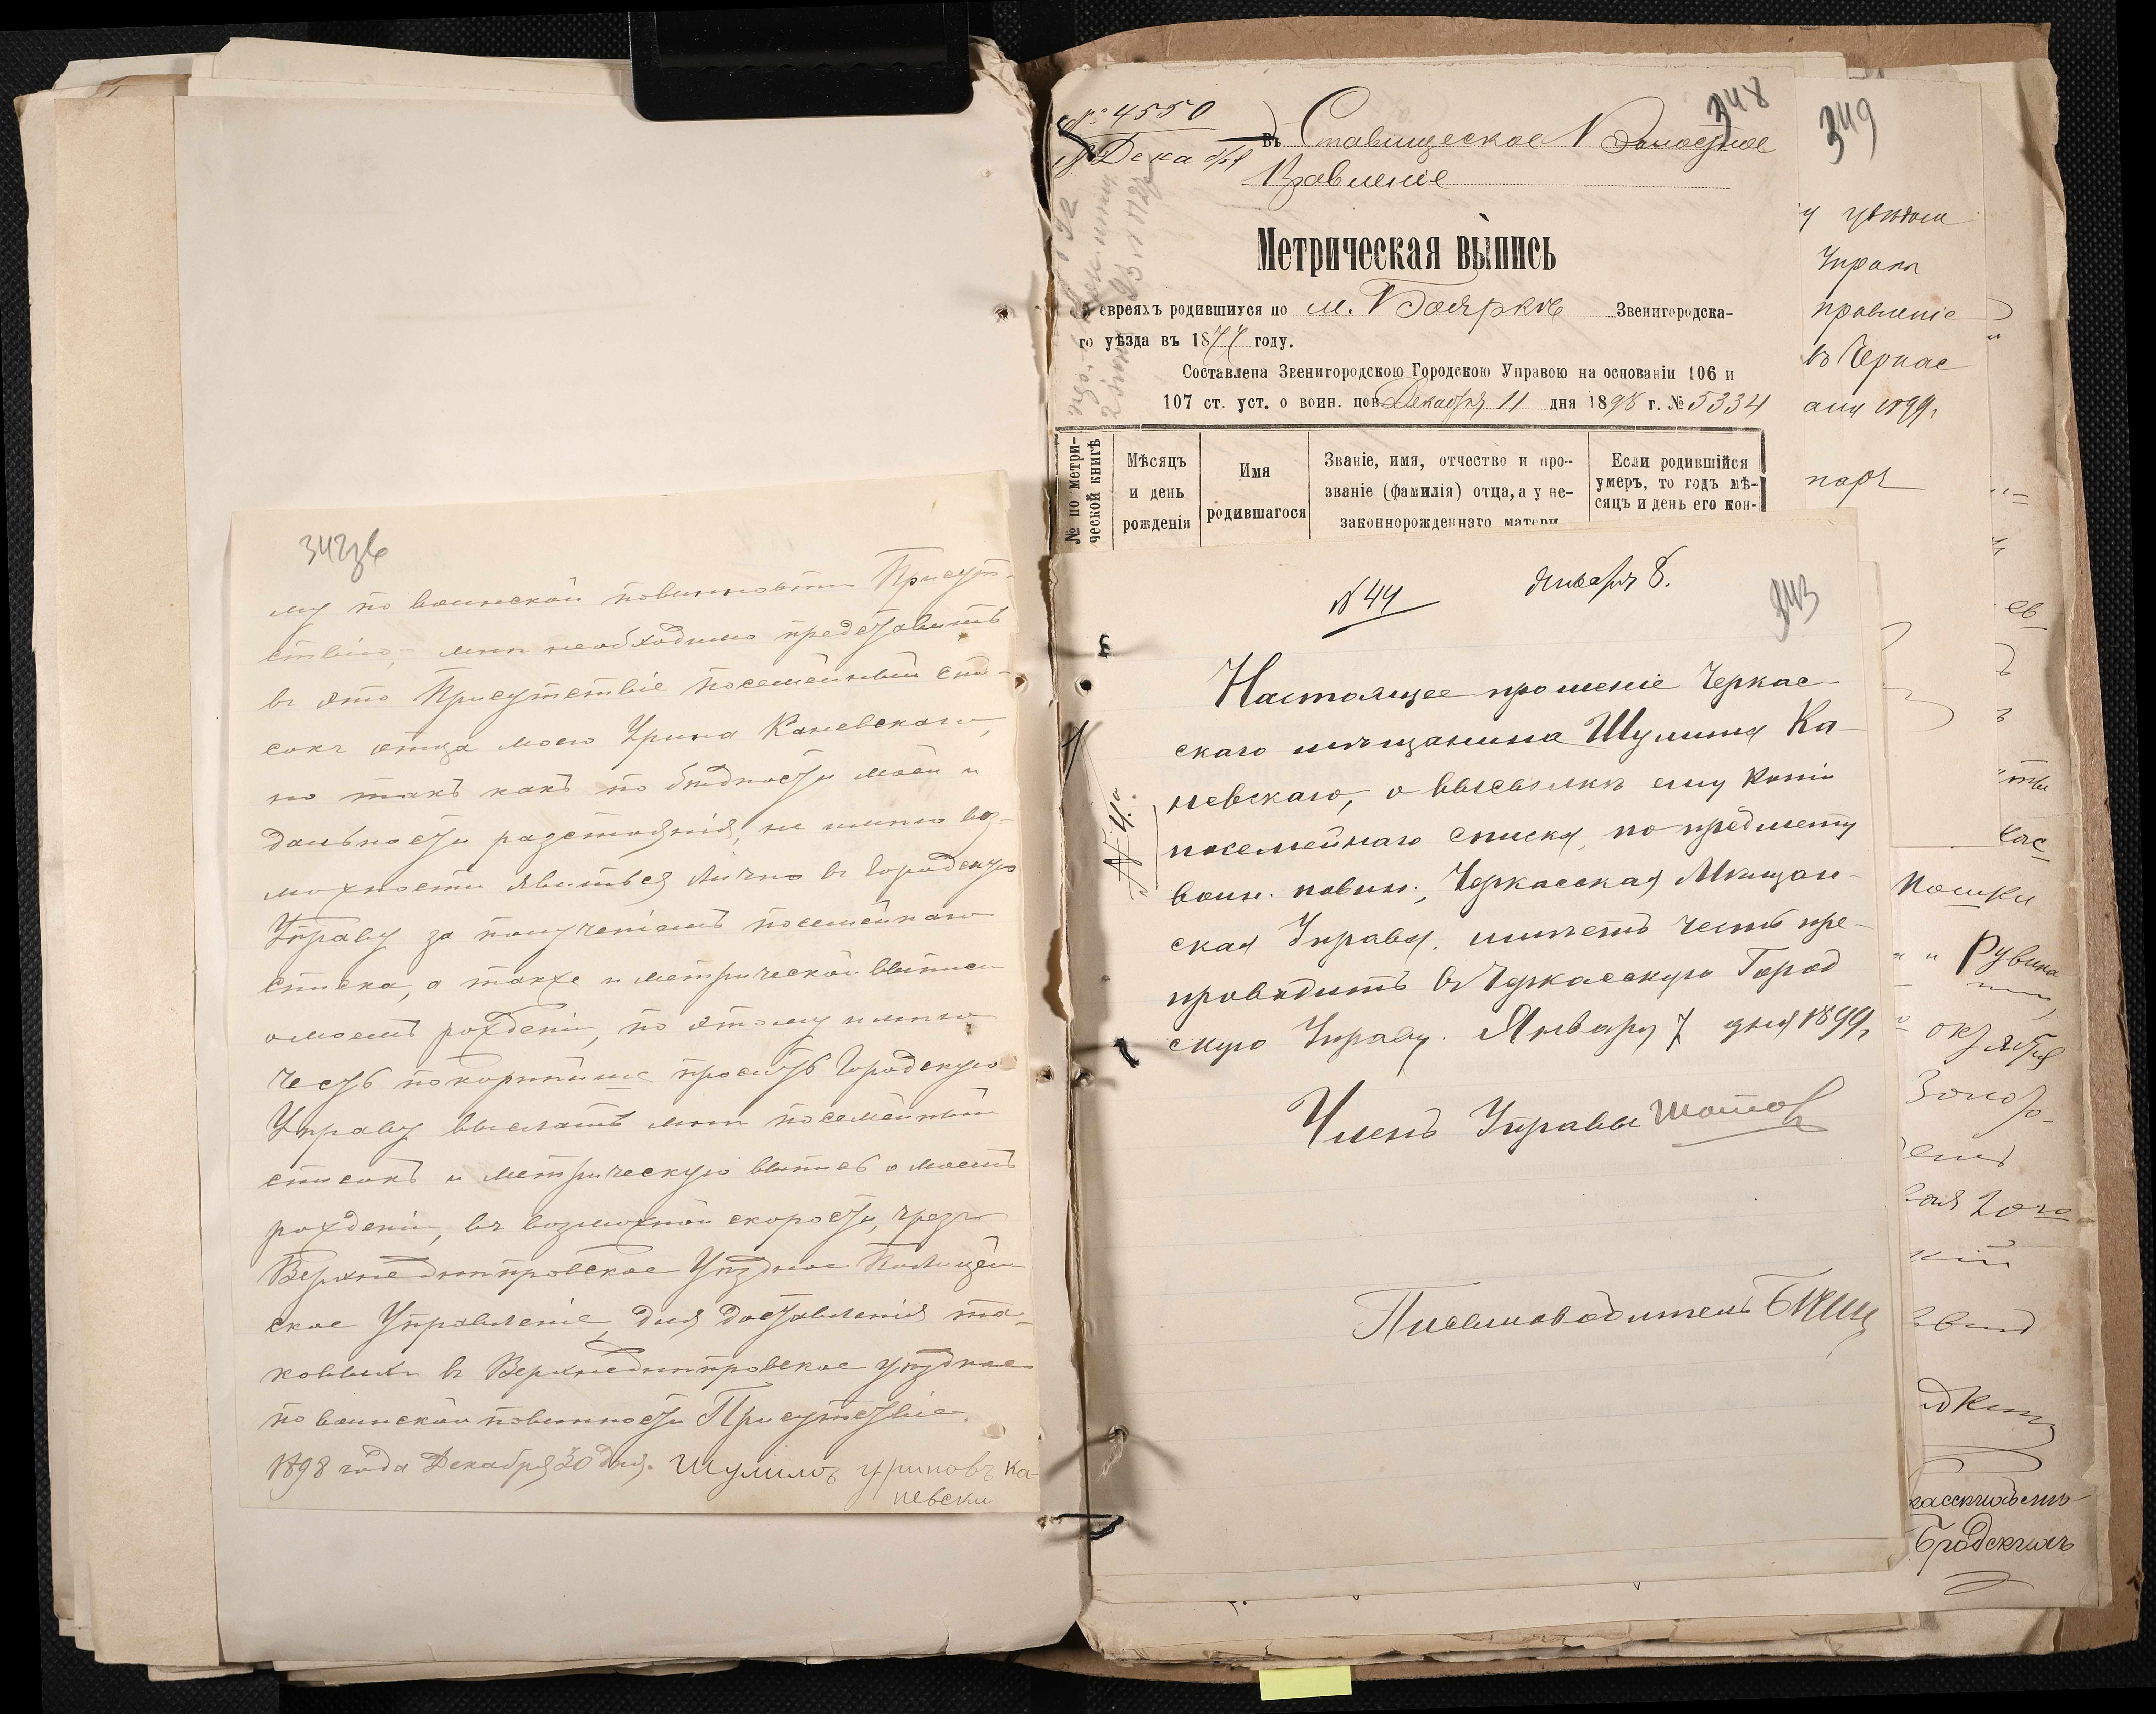 342зв
му по воинской повинности Присут-
ствію, мнѣ необходимо представить
въ это Присутствіе посемейный спи-
сокъ отца моего Урина Каневскаго,
но такъ какъ по бѣдности моей и
дальности разстоянія, не имѣю воз-
можности явиться лично въ Городскую
Управу за полученіемъ посемейнаго
списка, а также и метрической выписи
о моемъ рожденіи, по этому имѣю
честь покорнѣйше просить Городскую
Управу выслать мнѣ посемейный
списокъ и метрическую выпись о моемъ
рожденіи, въ возможной скорости, чрезъ
Верхнеднѣпровское Уѣздное Полицей-
ское Управленіе, для доставленія та-
ковыхъ въ Верхнеднѣпровское уѣздное
по воинской повинности Присутствіе.
1898 года Декабря 30 дня. Шулимъ Уриновъ Ка-
невски
№ 4550
Декабря
348
въ Ставищеское Волостное
Правленіе
Метрическая выпись
евреяхъ родившихся по м. Бояркѣ Звенигородска-
го уѣзда въ 1877 году.
Составлена Звенигородскою Городскою Управою на основаніи 106 и
107 ст. уст. о воин. пов. Декабря 11 дня 1898 г. № 5334
№ по метри-
ческой книгѣ
Мѣсяцъ
и день
рожденія
Имя
родившагося
Званіе, имя, отчество и про-
званіе (фамилія) отца, а у не-
законнорожденнаго матери
Если родившійся
умеръ, то годъ мѣ-
сяцъ и день его кон-
№ 44 Января 8.
343
Настоящее прошеніе Черкас-
скаго мѣщанина Шулима Ка-
невскаго, о высылкѣ ему копіи
посемейнаго списка, по предмету
воин. повин., Черкасская Мѣщан-
ская Управа, имѣетъ честь пре-
проводить въ Черкасскую Город
скую Управу. Января 7 дня 1899 г.
Членъ Управы
Письмоводитель
349
Управы
правленіе
въ Черкас
1899 г.
Рувина
октября
Бродскихъ